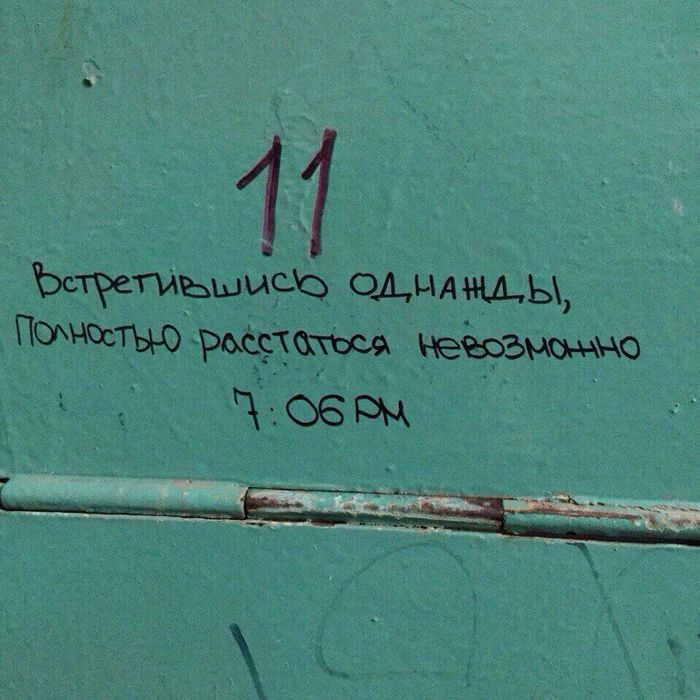 11
Встретившись однажды,
Полностью расстаться невозможно
7:06 PM